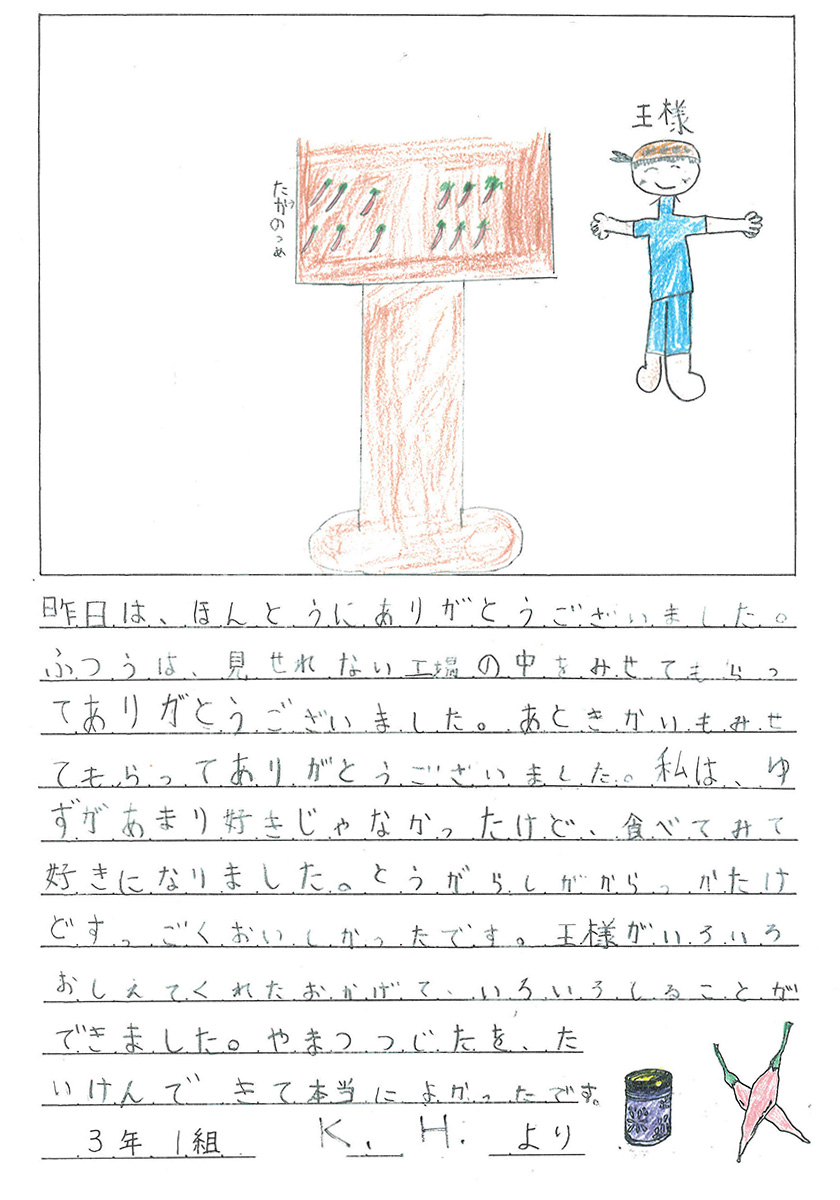 王様
たかのつめ
昨日は、ほんとうにありがとうございました。
ふつうは、見せれない工場の中をみせてもらっ
てありがとうございました。あときかいもみせ
てもらってありがとうございました。私は、ゆ
ずがあまり好きじゃなかったけど、食べてみて
好きになりました。とうがらしがからっかたけ
どすっごくおいしかったです。王様がいろいろ
おしえてくれたおかげて、いろいろしることが
できました。やまつつじたを、た
いけんできて本当によかったです。
3年1組 K. H. より